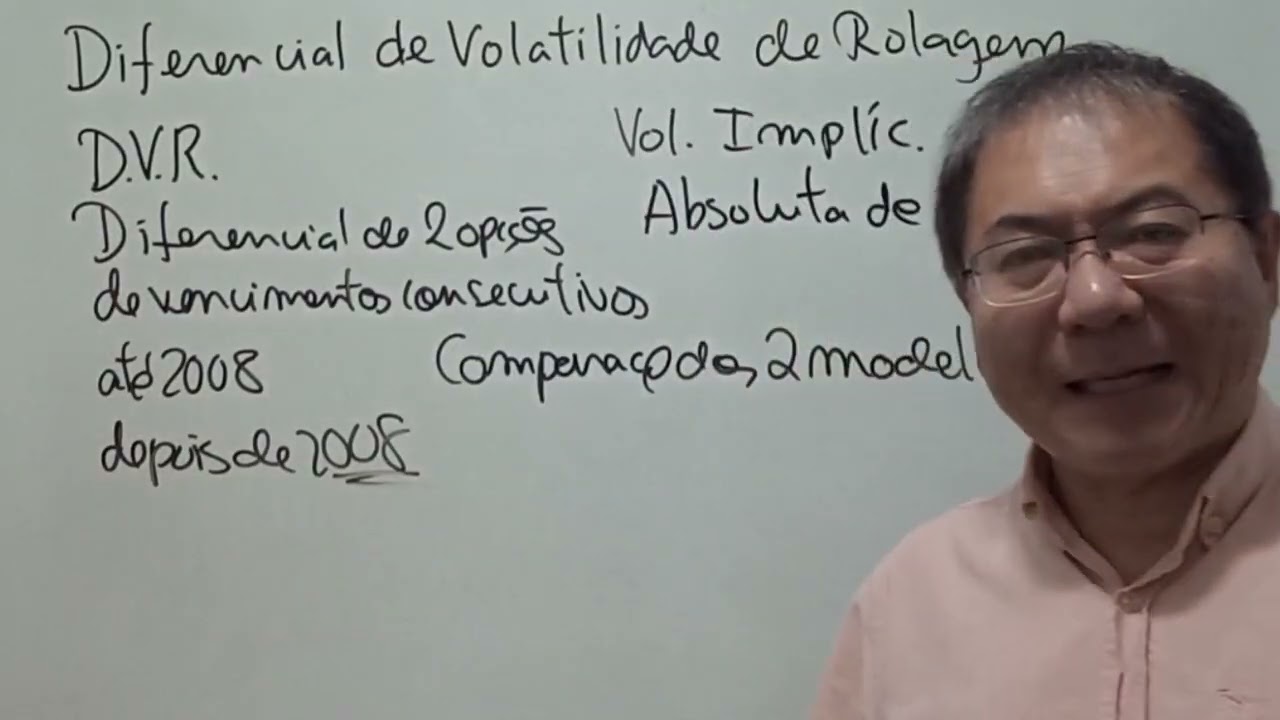 Diferencial de Volatilidade de Rolagem
D.V.R.
Diferencial de 2 opções
de vencimentos consecutivos
até 2008
depois de 2008
Vol. Implíc.
Absoluta de
Comparaço dos 2 model